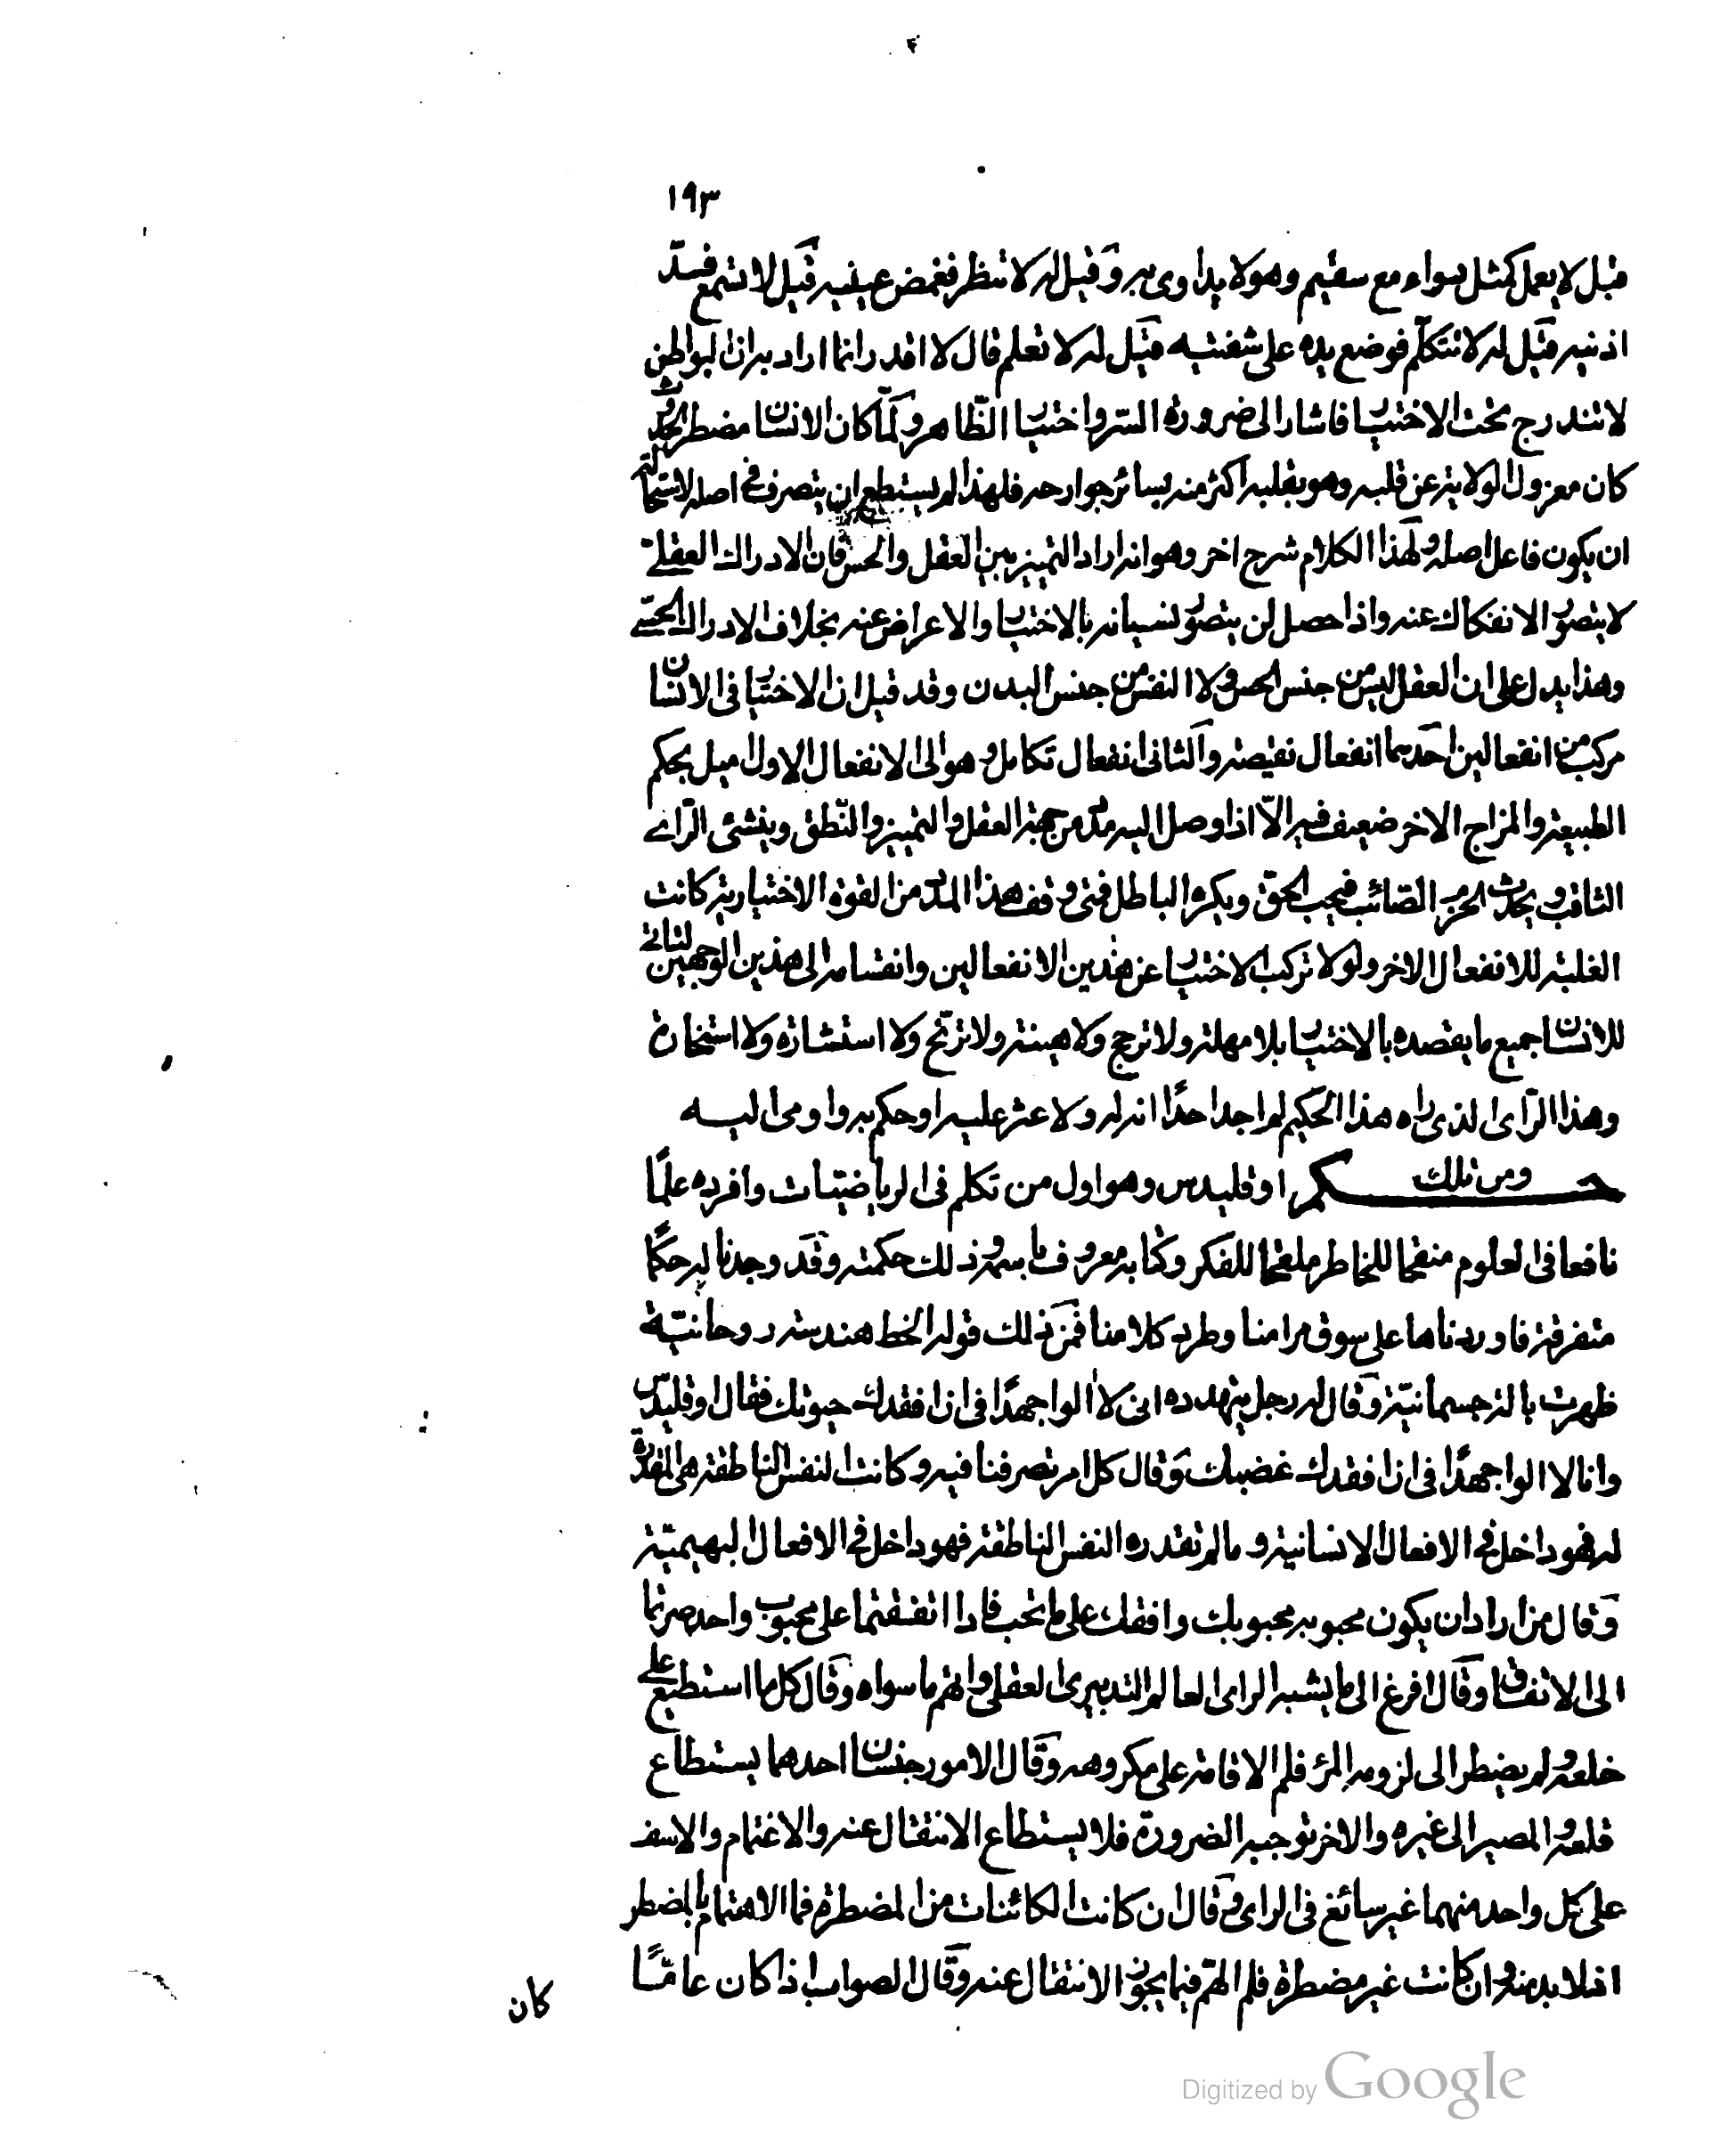 ١٩٣
قبل لا يعمل كمثل دواء مع سقيم وهو لا يداوى به وقيل له لا تنظر فغمض عينيه قيل لا تسمع فسدّ
اذنيه قيل له لا تتكلّم فوضع يده على شفتيه قيل له لا تعلم قال لا اقدر انما اراد به ان البواطن
لا تندرج تحت الاختيار فاشار الى ضرورة السر واختيار الظّاهر ولمّا كان الانسان مضطر الحدوث
كان معزول الولاية عن قلبه وهو بقلبه اكثر منه بسائر جوارحه فلهذا لم يستطع ان يتصرف فى اصله لاستحالة
ان يكون فاعل اصله ولهذا الكلام شرح اخر وهو انه اراد التمييز بين العقل والحس فان الادراك العقلى
لا يتصور الانفكاك عنه واذا حصل لن يتصور نسيانه بالاختيار والاعراض عنه بخلاف الادراك الحسّى
وهذا يدل على ان العقل ليس من جنس الحس ولا النفس من جنس البدن وقد قيل ان الاختيار فى الانسان
مركب من انفعالين احدهما انفعال نقيصة والثانى انفعال تكامل وهو الى الانفعال الاول اميل بحكم
الطبيعة والمزاج الاخر ضعيف فيه الّا اذا وصل اليه مدد من جهة العقل والتمييز والنّطق وينشئ الرّاى
الثاقب ويحدث الحزم الصّائب فيحب الحقّ ويكره الباطل فمتى وقف هذا المدد من القوة الاختيارية كانت
الغلبة للانفعال الاخر ولولا تركب الاختيار عن هذين الانفعالين وانقسامه الى هذين الوجهين لتاتى
للانسان جميع ما يقصده بالاختيار بلا مهلة ولا ترجح ولا هينة ولا تريّح ولا استشارة ولا استخارة
وهذا الرّاى الذى راه هذا الحكيم لم اجد احدًا انه له ولا عثر عليه او حكم به واومى اليه
ومن تلك حكم اوقليدس وهو اول من تكلم فى الرياضيات وافرده علمًا
نافعا فى العلوم منقحا للخاطر ملقحا للفكر وكتابه معروف باسمه وذلك حكمته وقد وجدنا له حكمًا
متفرقة فاوردناها على سوق مرامنا وطرد كلامنا فمن ذلك قوله الخط هندسة روحانيّة
ظهرت بالة جسمانيّة وقال له رجل يتهدده انى لا الوا جهدًا فى ان افقدك حيوتك فقال اوقليدس
وانا لا الوا جهدًا فى ان افقدك غضبك وقال كل امر تصرفنا فيه وكانت النفس الناطقة هى المقدرة
له فهو داخل فى الافعال الانسانية وما لم تقدره النفس الناطقة فهو داخل فى الافعال البهيمية
وقال من اراد ان يكون محبوبه محبوبك وافقك على ما تحب فاذا اتفقتما على محبوب واحد صرتما
الى الاتفاق وقال افرغ الى ما يشبه الراى العالم التدبيرى العقلى واتهم ما سواه وقال كل ما استطيع على
خلعه ولم يضطر الى لزومه المرء فلم الاقامة على مكروهه وقال الامور جنسان احدهما يستطاع
قلعه والمصير الى غيره والاخر توجبه الضرورة فلا يستطاع الانتقال عنه والاغتمام والاسف
على كل واحد منهما غير سائغ فى الراى وقال ان كانت الكائنات من المضطرة فما الاهتمام بالمضطر
اذ لا بد منه وان كانت غير مضطرة فلم الهمّ فيما يجوز الانتقال عنه وقال الصواب اذا كان عامّا
كان
Digitized by Google